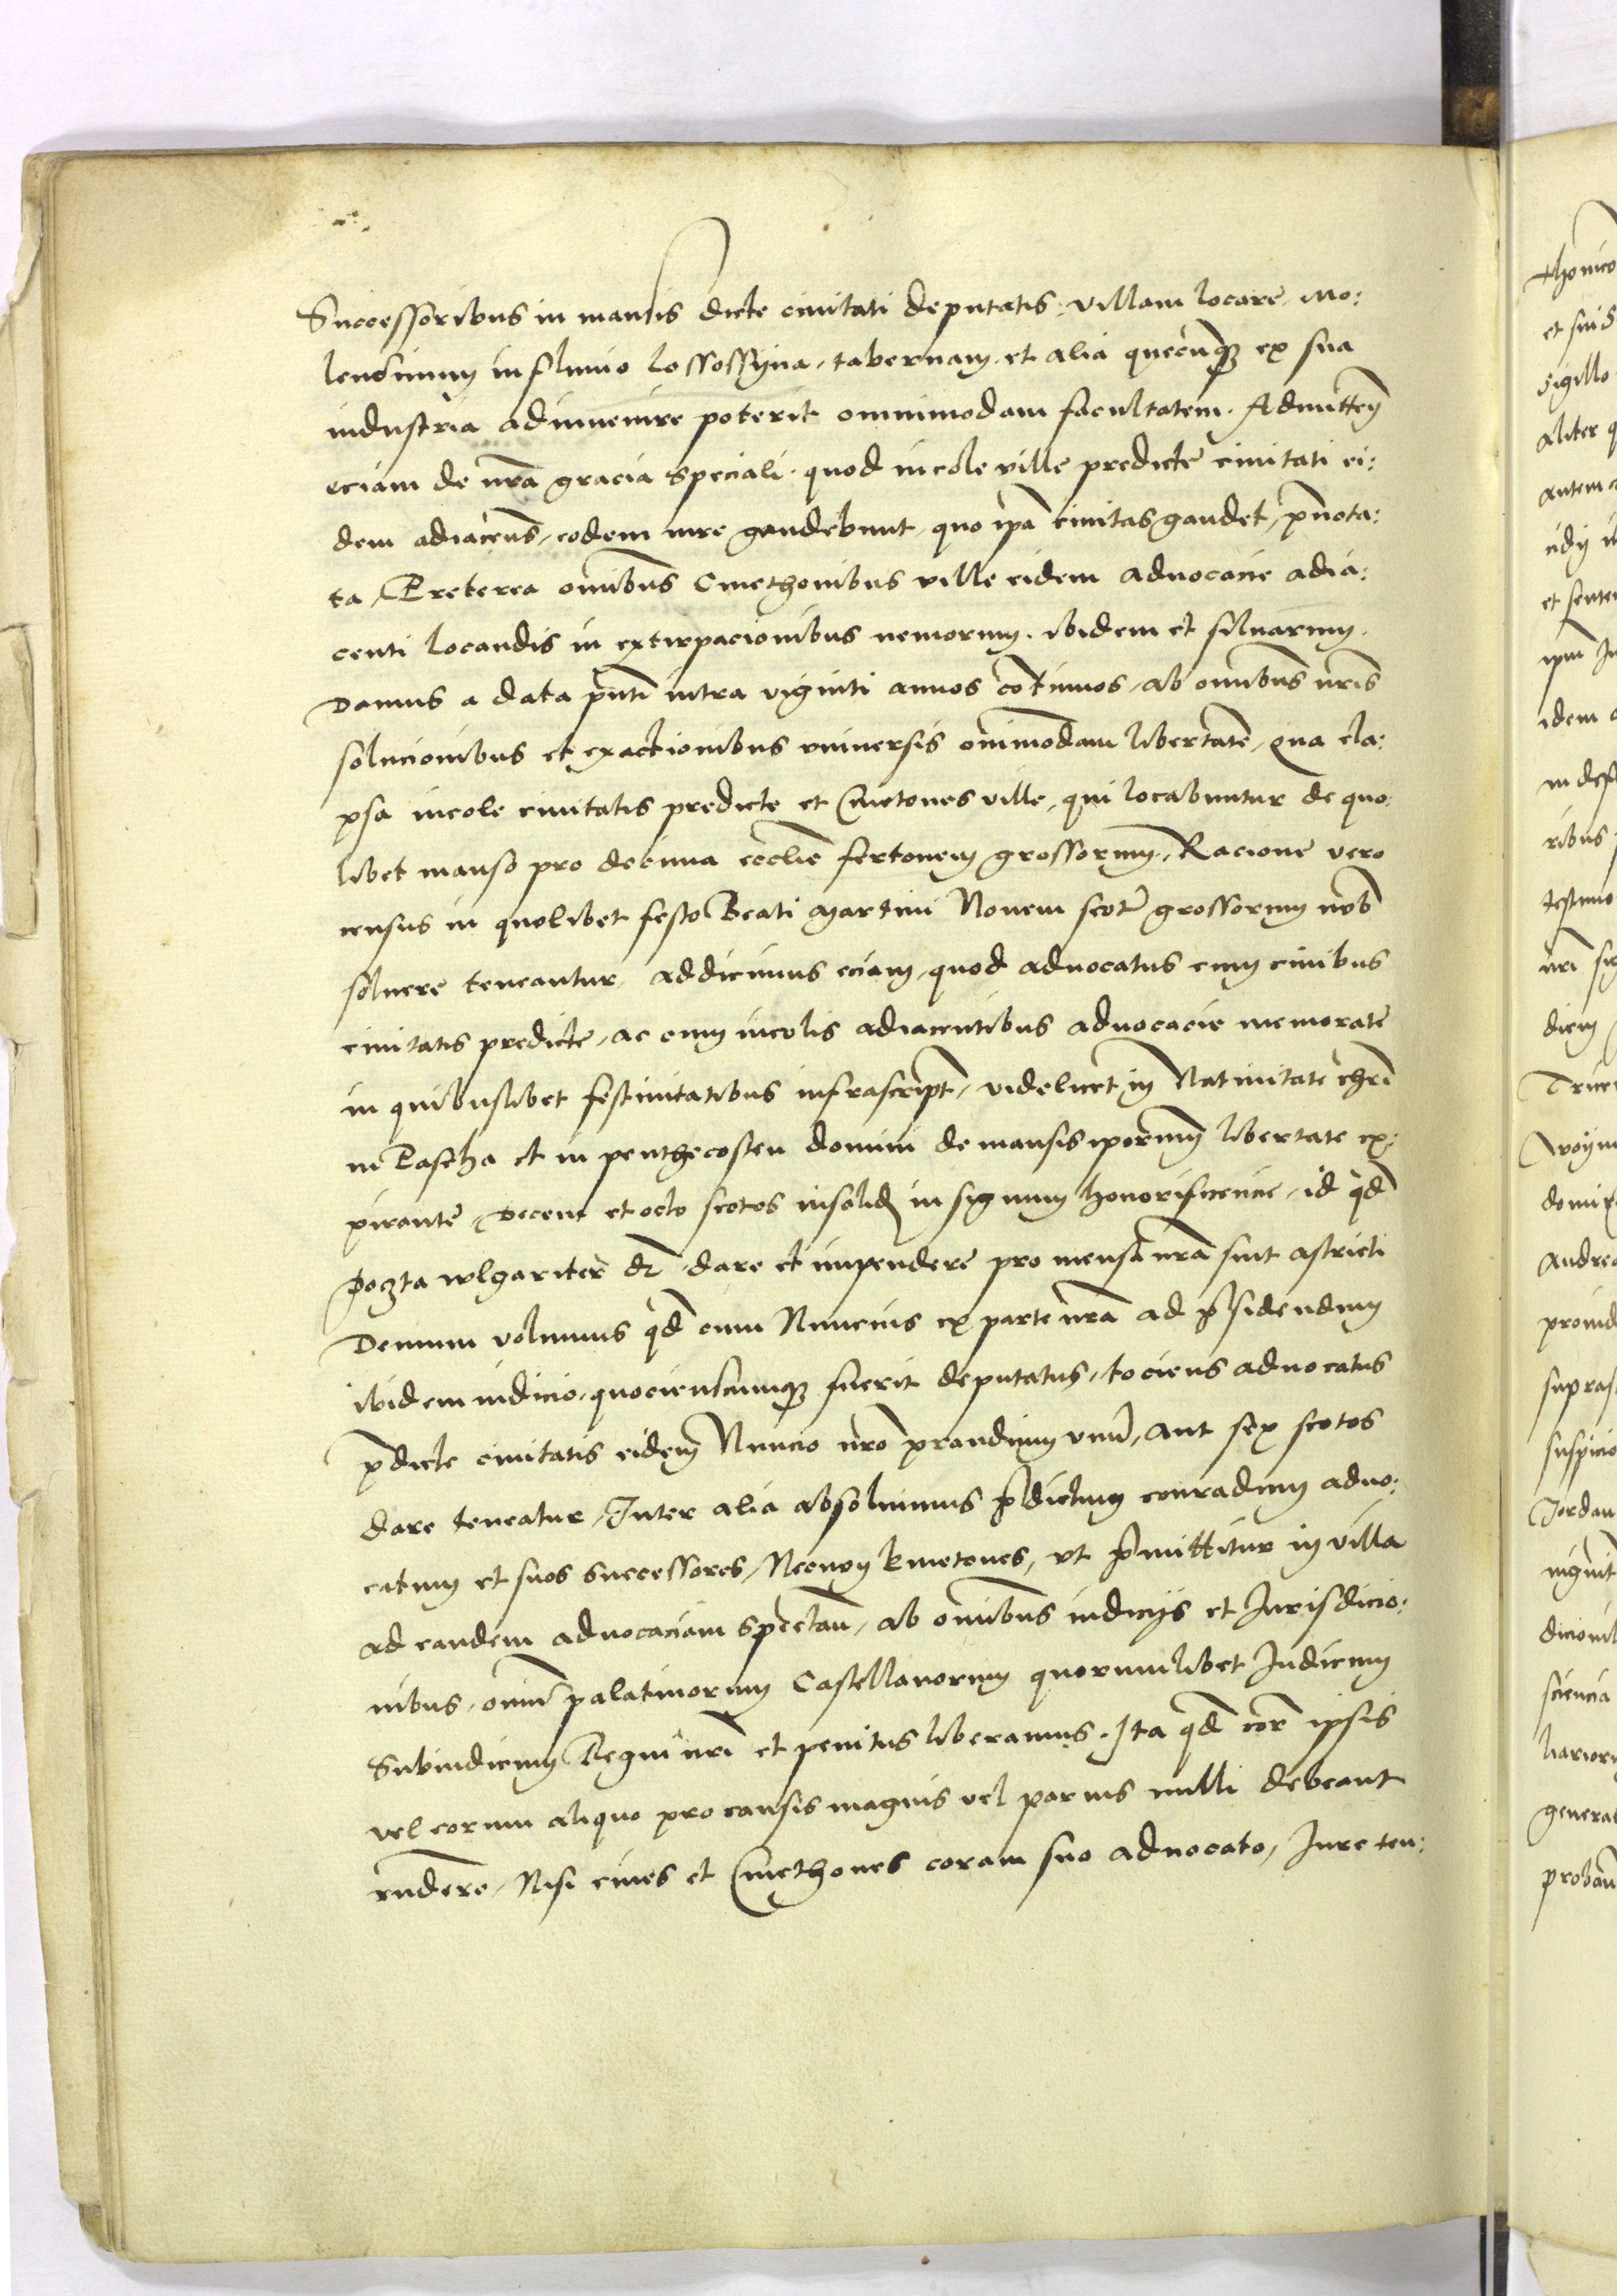 Successoribus in mansis dicte ciuitati deputatis, villam locare, mo:
lendinum in fluuio Lossossyna, tabernam, et alia quecunq3 ex sua
industria adinuenire poterit omnimodam facultatem. Admitten̄
eciam de nr̄a gracia speciali, quod incole ville predicte ciuitati ei:
dem adiacen̄s, eodem iure gaudebunt, quo ip̄a ciuitas gaudet, p̄nota:
ta, Preterea om̄ibus Cmethonibus ville eidem aduocacie adia:
centi locandis in extirpacionibus nemorum, ibidem et siluarum,
Damus a data p̄nti intra viginti annos cōtinuos, ab om̄ibus nr̄is
solucionibus et exactionibus vniuersis om̄imodam libertatē, qua ela:
psa incole ciuitatis predicte et Cmetones ville, qui locabuntur de quo:
libet manso pro decima eccl̄ie fertonem grossorum, Racione vero
census in quolibet festo Beati Martini Nouem scot̄ grossorum nob̄
soluere teneantur, addicimus eciam, quod aduocatus cum ciuibus
ciuitatis predicte, ac cum incolis adiacentibus aduocacie memorate
in quibuslibet festiuitatibus infrascript̄, videlicet in Natiuitate chr̄i
in Pascha et in penthecosten domini de mansis ip̄orum libertate ex:
pirante, Decem et octo scotos insolid̄ in signum honorificencie, id qd̄
Poczta wlgariter dr̄, dare et impendere pro mensa nr̄a sint astricti
Demum volumus qd̄ cum Nuncius ex parte nr̄a ad p̄sidendum
ibidem iudicio, quocienscumq3 fuerit deputatus, tociens aduocatus
p̄dicte ciuitatis eidem Nuncio nr̄o prandium vnū, aut sex scotos
dare teneatur, Inter alia absoluimus p̄dictum conradum aduo:
catum et suos successores, Necnon kmetones, vt p̄mittitur in villa
ad eandem aduocaciam spectan̄, ab om̄ibus iudicijs et Jurisdicio:
nibus, om̄iū palatinorum Castellanorum quorumlibet Judicum
Subiudicum Regni nr̄i et penitus liberamus. Ita qd̄ cor̄ ipsis
vel eorum aliquo pro causis magnis vel paruis nulli debeant
rn̄dere, Nisi ciues et Cmethones coram suo aduocato, Jure teu:
thonico
et suis
sigillo
aliter q
autem c
idem
sigillo
testimo
nr̄i
diem
domi
Andre
prouid
supras
suspicio
Jordan
dicionib
sciencia
generat